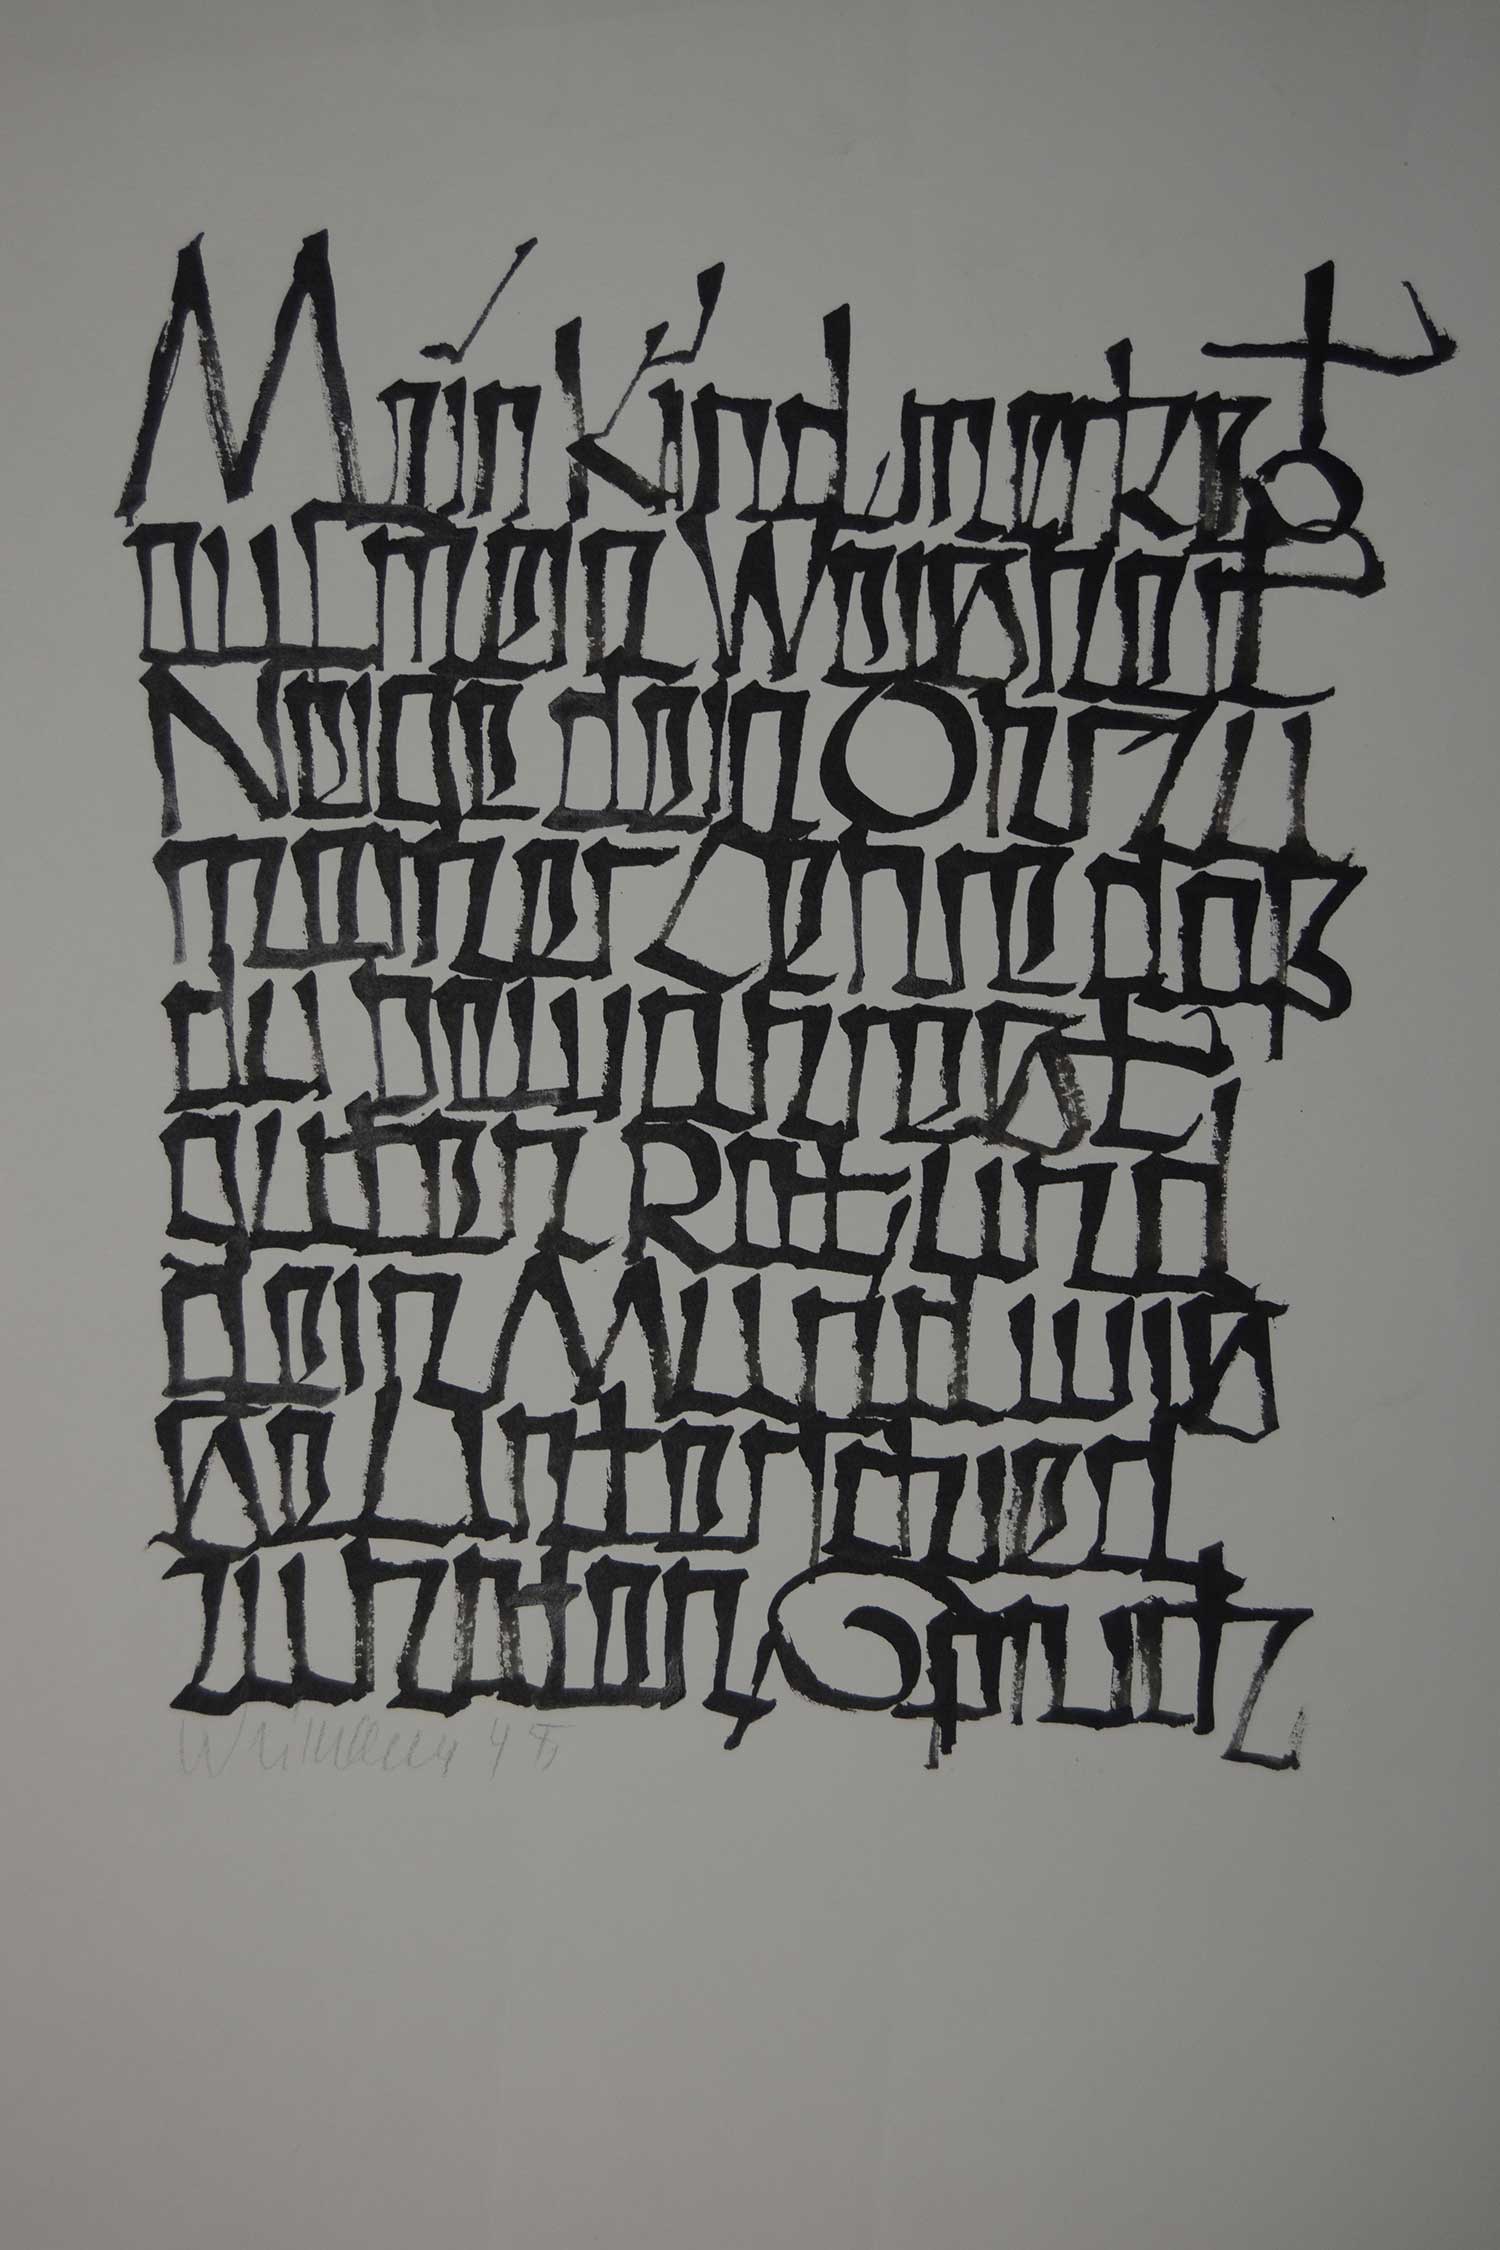 Mein Kind, merke
auf meine Weisheit
Neige dein Ohr zu
meiner Lehre daß
du bewahrest
guten Rat und
dein Mund wis
se Unterschied
zu halten,